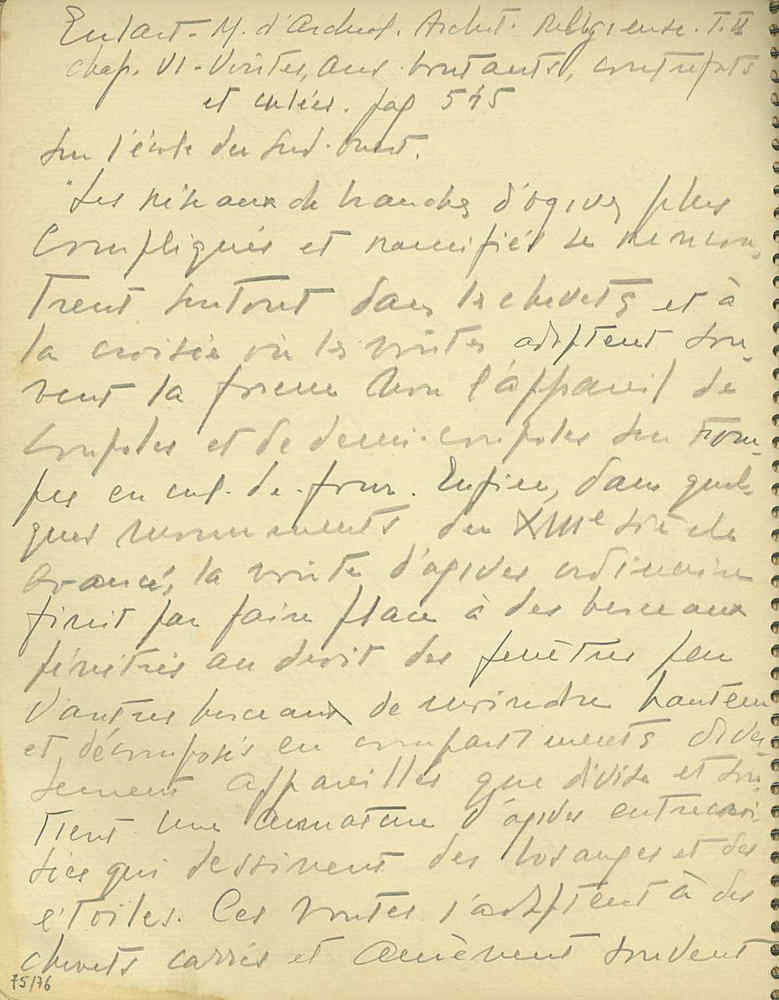 Enlart - M. d'Archeol. Archit. Religieuse. T. II
chap. VI - Voûtes, arcs-boutants, contreforts
et culées. pag 545
Sur l'école du Sud-Ouest.
"Les réseaux de branches d'ogives plus
compliqués et ramifiés se rencon-
trent surtout dans les chevets et à
la croisée où les voûtes adoptent sou-
vent la forme sinon l'appareil de
coupoles et de demi-coupoles sur trom-
pes en cul-de-four. Enfin, dans quel-
ques monuments du XIIIe siècle
avancé, la voûte d'ogives ordinaire
finit par faire place à des berceaux
pénétrés au droit des fenêtres par
d'autres berceaux de moindre hauteur
et décomposés en compartiments diver-
sement appareillés que divise et sou-
tient une armature d'ogives entrecroi-
sées qui dessinent des losanges et des
étoiles. Ces voutes s'adaptent à des
chevets carrés et amènent souvent
75/76